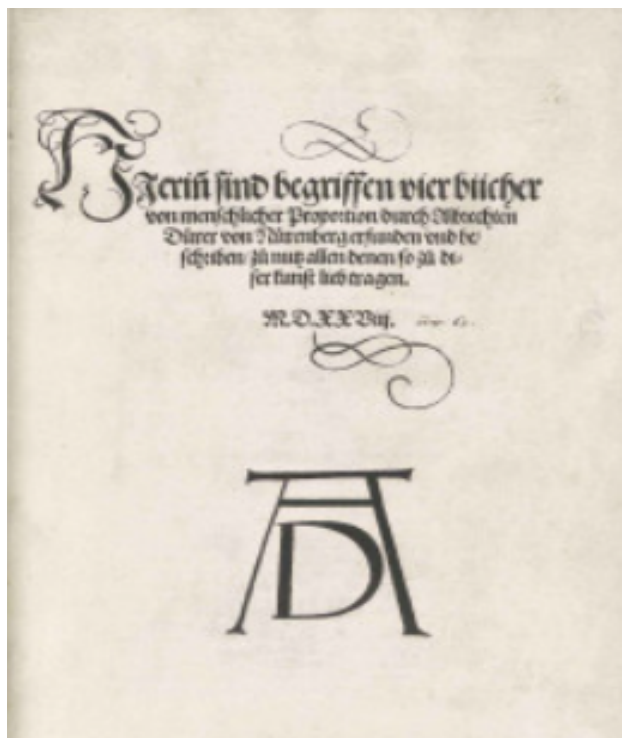 HJeriñ sind begriffen vier bücher
von menschlicher Proportion durch Albrechten
Dürer von Nürenberg erfunden vnd be/
schriben/ zů nutz allen denen so zů di/
ser kunst lieb tragen.
M.D.XXViij.
AD